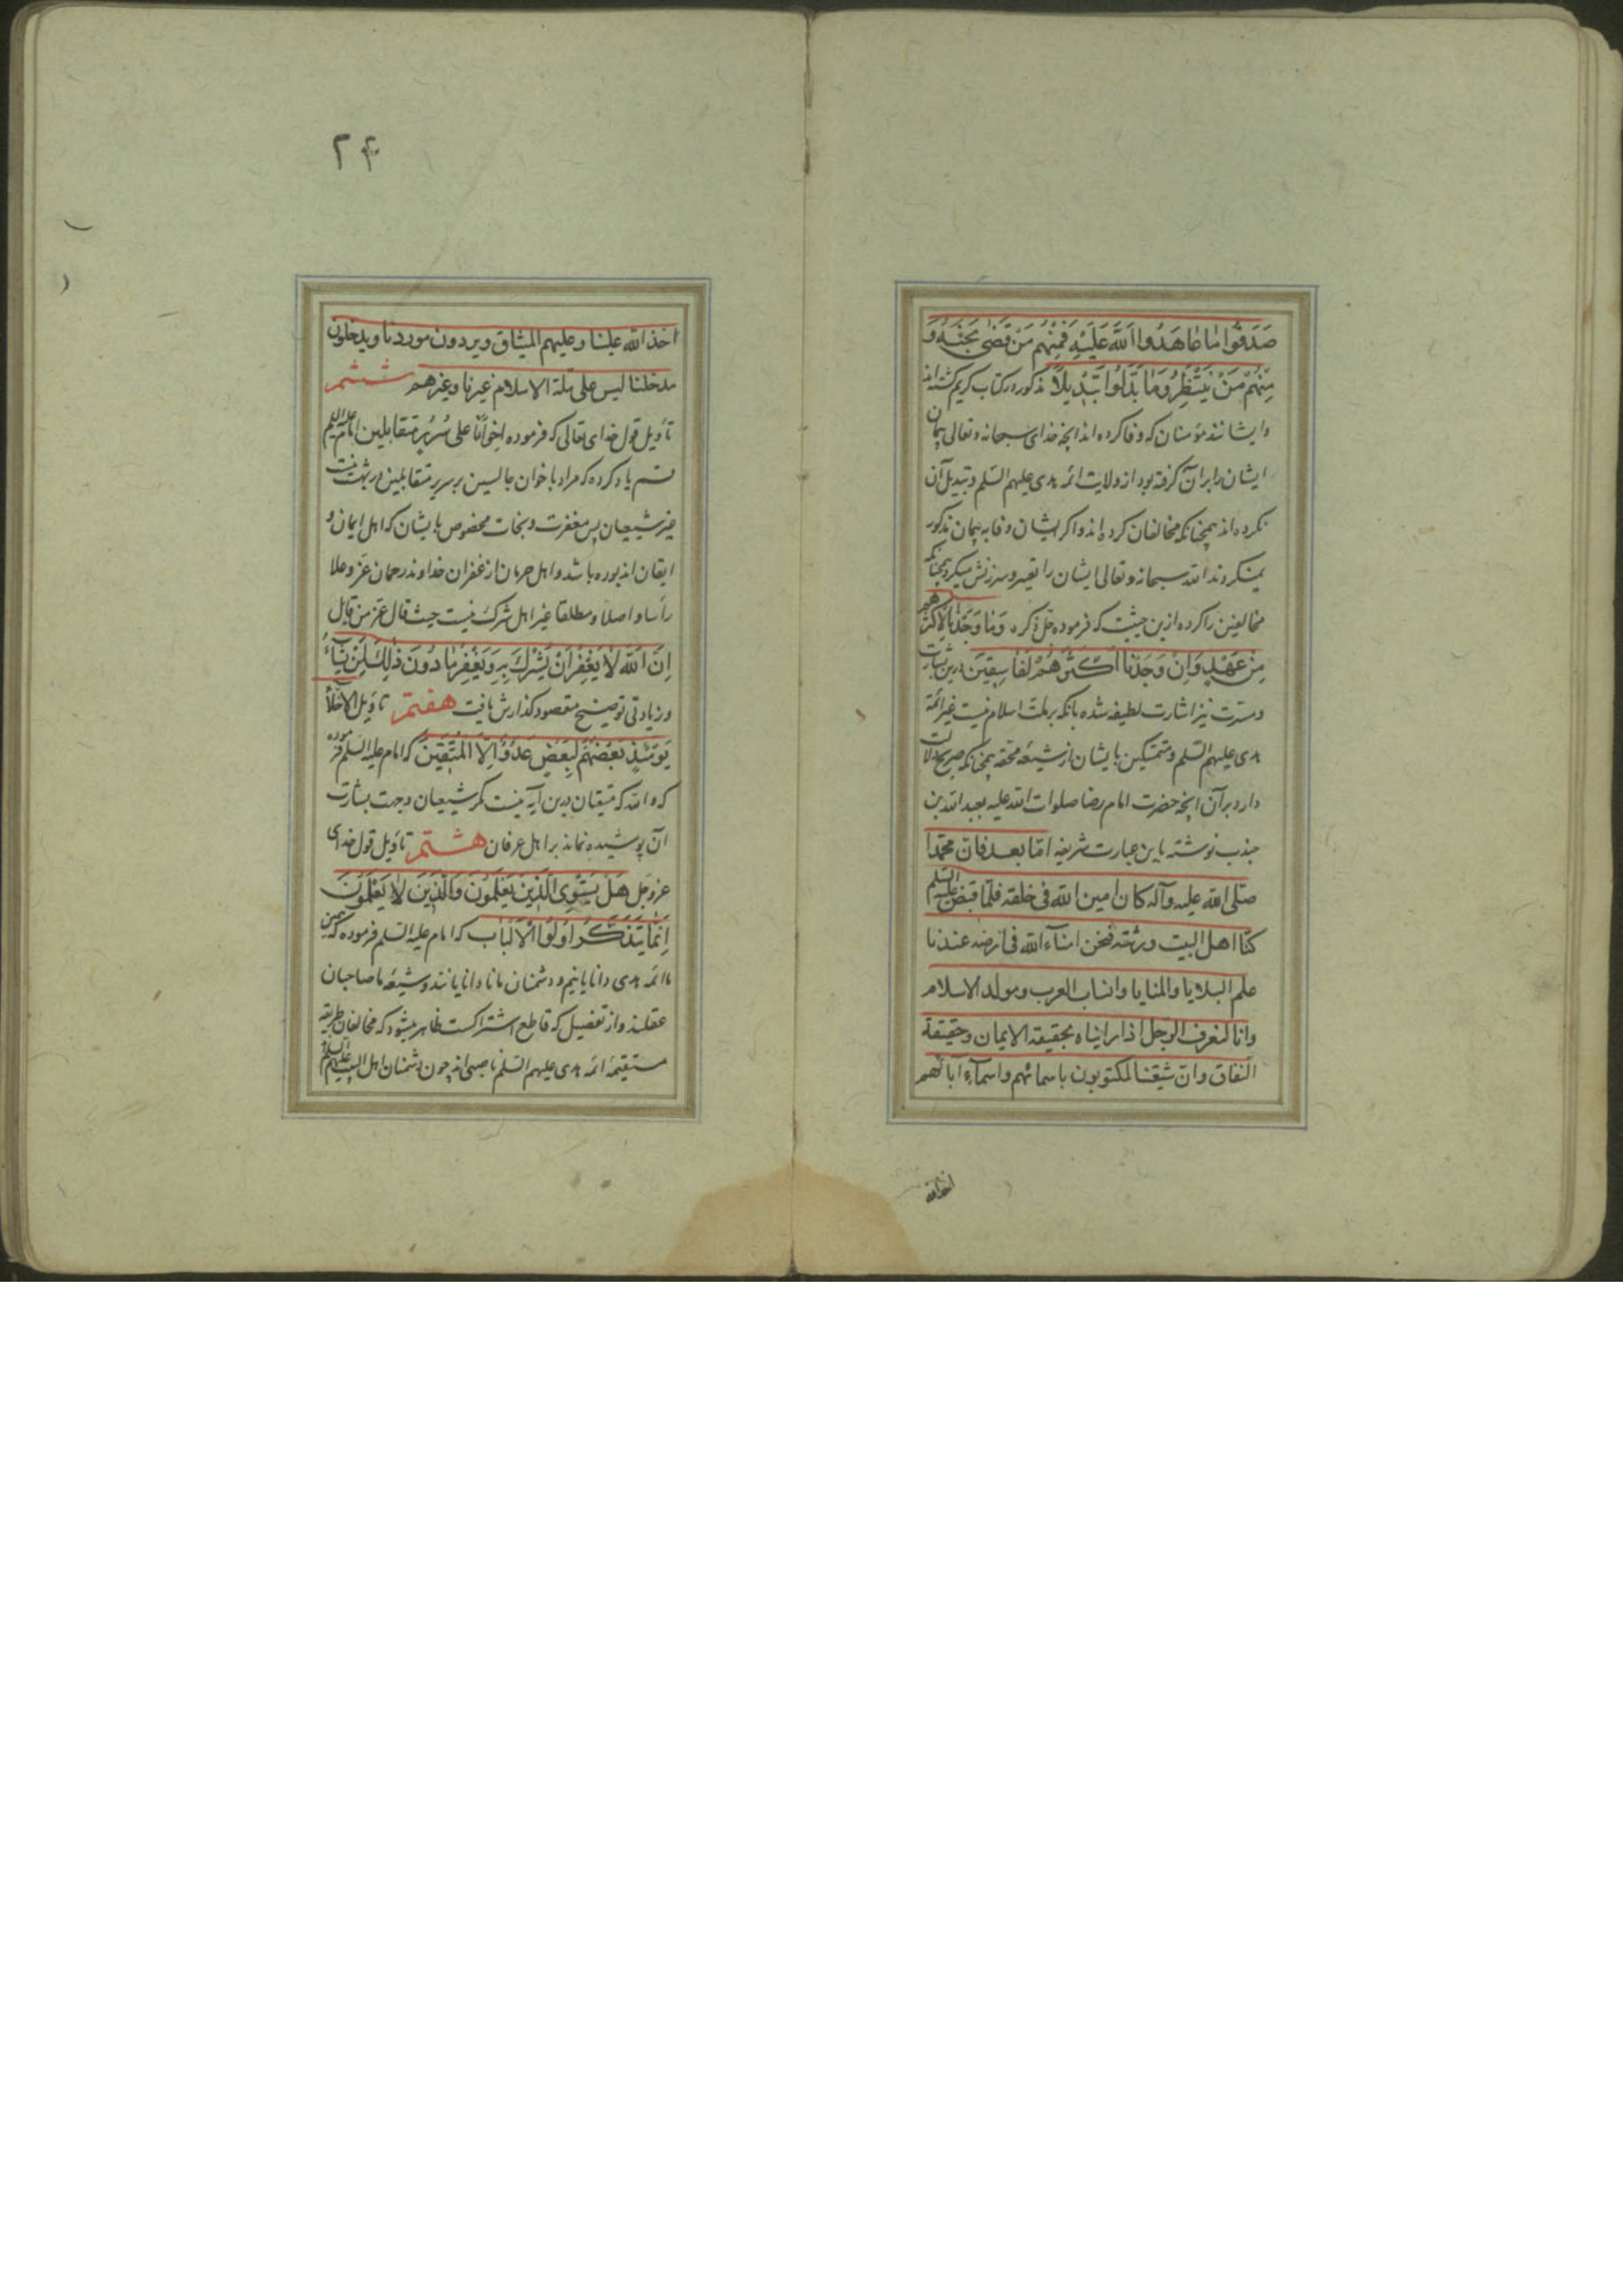 صَدَقُوا مٰا عٰاهَدُوا اَللّٰهَ عَلَيْهِ فَمِنْهُم مَن قَضٰى نَحْبَهُ وَ
مِنْهُمْ مَنْ يَنْتَظِرُ وَمٰا بَدَّلُوا تَبْدِيلًا مذکور در کتاب کریم گشته‌اند
و ایشانند مؤمنان که وفا کرده‌اند انچه خدای سبحانه و تعالی پیمان
ایشان را بر آن گرفته بود از ولایت ائمه هدی علیهم السّلم و تبدیل آن
نکرده‌اند همچنانکه مخالفان کرده‌اند و اکر ایشان وفا به پیمان مذکور
نمیکردند الله سبحانه و تعالی ایشان را تعییر و سرزنش میکرد همچنانکه
مخالفین را کرده ازین حیثیت که فرموده جلّ ذکره وَمٰا وَجَدْنٰا لِاَكْثَرِهِمْ
مِنْ عَهْدٍ وَاِنْ وَجَدْنٰا اَكْثَرَهُمْ لَفٰاسِقِينَ درین بشارت
و مسرّت نیز اشارت لطیفه شده بانکه بر ملت اسلام نیست غیر ائمّة
هدی علیهم السّلم و متمسّکین بایشان از شیعهٔ محقه همچنانکه صریح دلالت
دارد بر آن انچه حضرت امام رضا صلوات الله علیه بعبد الله بن
جندب نوشته باین عبارت شریفه امّا بعد فانّ محمّدا
صلّى الله عليه وآله كان امين الله فى خلقه فلمّا قبض عليه السّلم
كنّا اهل البيت ورثته فنحن امنآء الله فى ارضه عندنا
علم البلايا والمنايا وانساب العرب ومولد الاسلام
وانا لنعرف الرّجل اذا رايناه بحقيقة الايمان وحقيقة
النّفاق وانّ شيعتنا لمكتوبون باسمائهم واسمآء آبائهم
۲۴
اخذ الله علينا وعليهم الميثاق ويردون موردنا ويدخلون
مدخلنا ليس على ملّة الاسلام غيرنا وغيرهم ششم
تأویل قول خدای تعالی که فرموده اِخوٰانًا على سُرُرٍ متقابلين امام علیه السّلم
قسم یاد کرده که مراد باخوان جالسین بر سریر متقابلین در بهشت نیست
غیر شیعیان پس مغفرت و نجات مخصوص بایشان که اهل ایمان و
ایقان‌اند بوده باشد و اهل حرمان از غفران خداوند رحمان عزّ وعلا
رأسا و اصلا و مطلقا غیر اهل شرک نیست حیث قال عزّ من قایل
اِنَّ اَللّٰهَ لٰا يَغْفِرُ اَنْ يُشْرَكَ بِهِ وَيَغْفِرُ مٰا دُونَ ذٰلِكَ لِمَنْ يَشٰآءُ
و زیادتی توضیح مقصود گذارش یافت هفتم تأویل الاخلّاء
يَوْمَئِذٍ بَعْضُهُمْ لِبَعْضٍ عَدُوٌّ اِلَّا الْمُتَّقِينَ که امام علیه السّلم فرموده
که والله که متقیان درین آیه نیست مکر شیعیان و جهت بشارت
آن پوشیده نماند بر اهل عرفان هشتم تأویل قول خدای
عزّ وجلّ هَلْ يَسْتَوِى الَّذِينَ يَعْلَمُونَ وَالَّذِينَ لٰا يَعْلَمُونَ
اِنَّمٰا يَتَذَكَّرُ اُولُوا الْاَلْبٰابِ که امام علیه السّلم فرموده که همین
ما ائمه هدی دانایانیم و دشمنان ما نادانایانند و شیعهٔ ما صاحبان
عقلند و از تفضیل که قاطع اشتراکست ظاهر میشود که مخالفان طریقه
مستقیمهٔ ائمه هدی علیهم السّلم ناصبی‌اند چون دشمنان اهل البیت علیهم السّلم